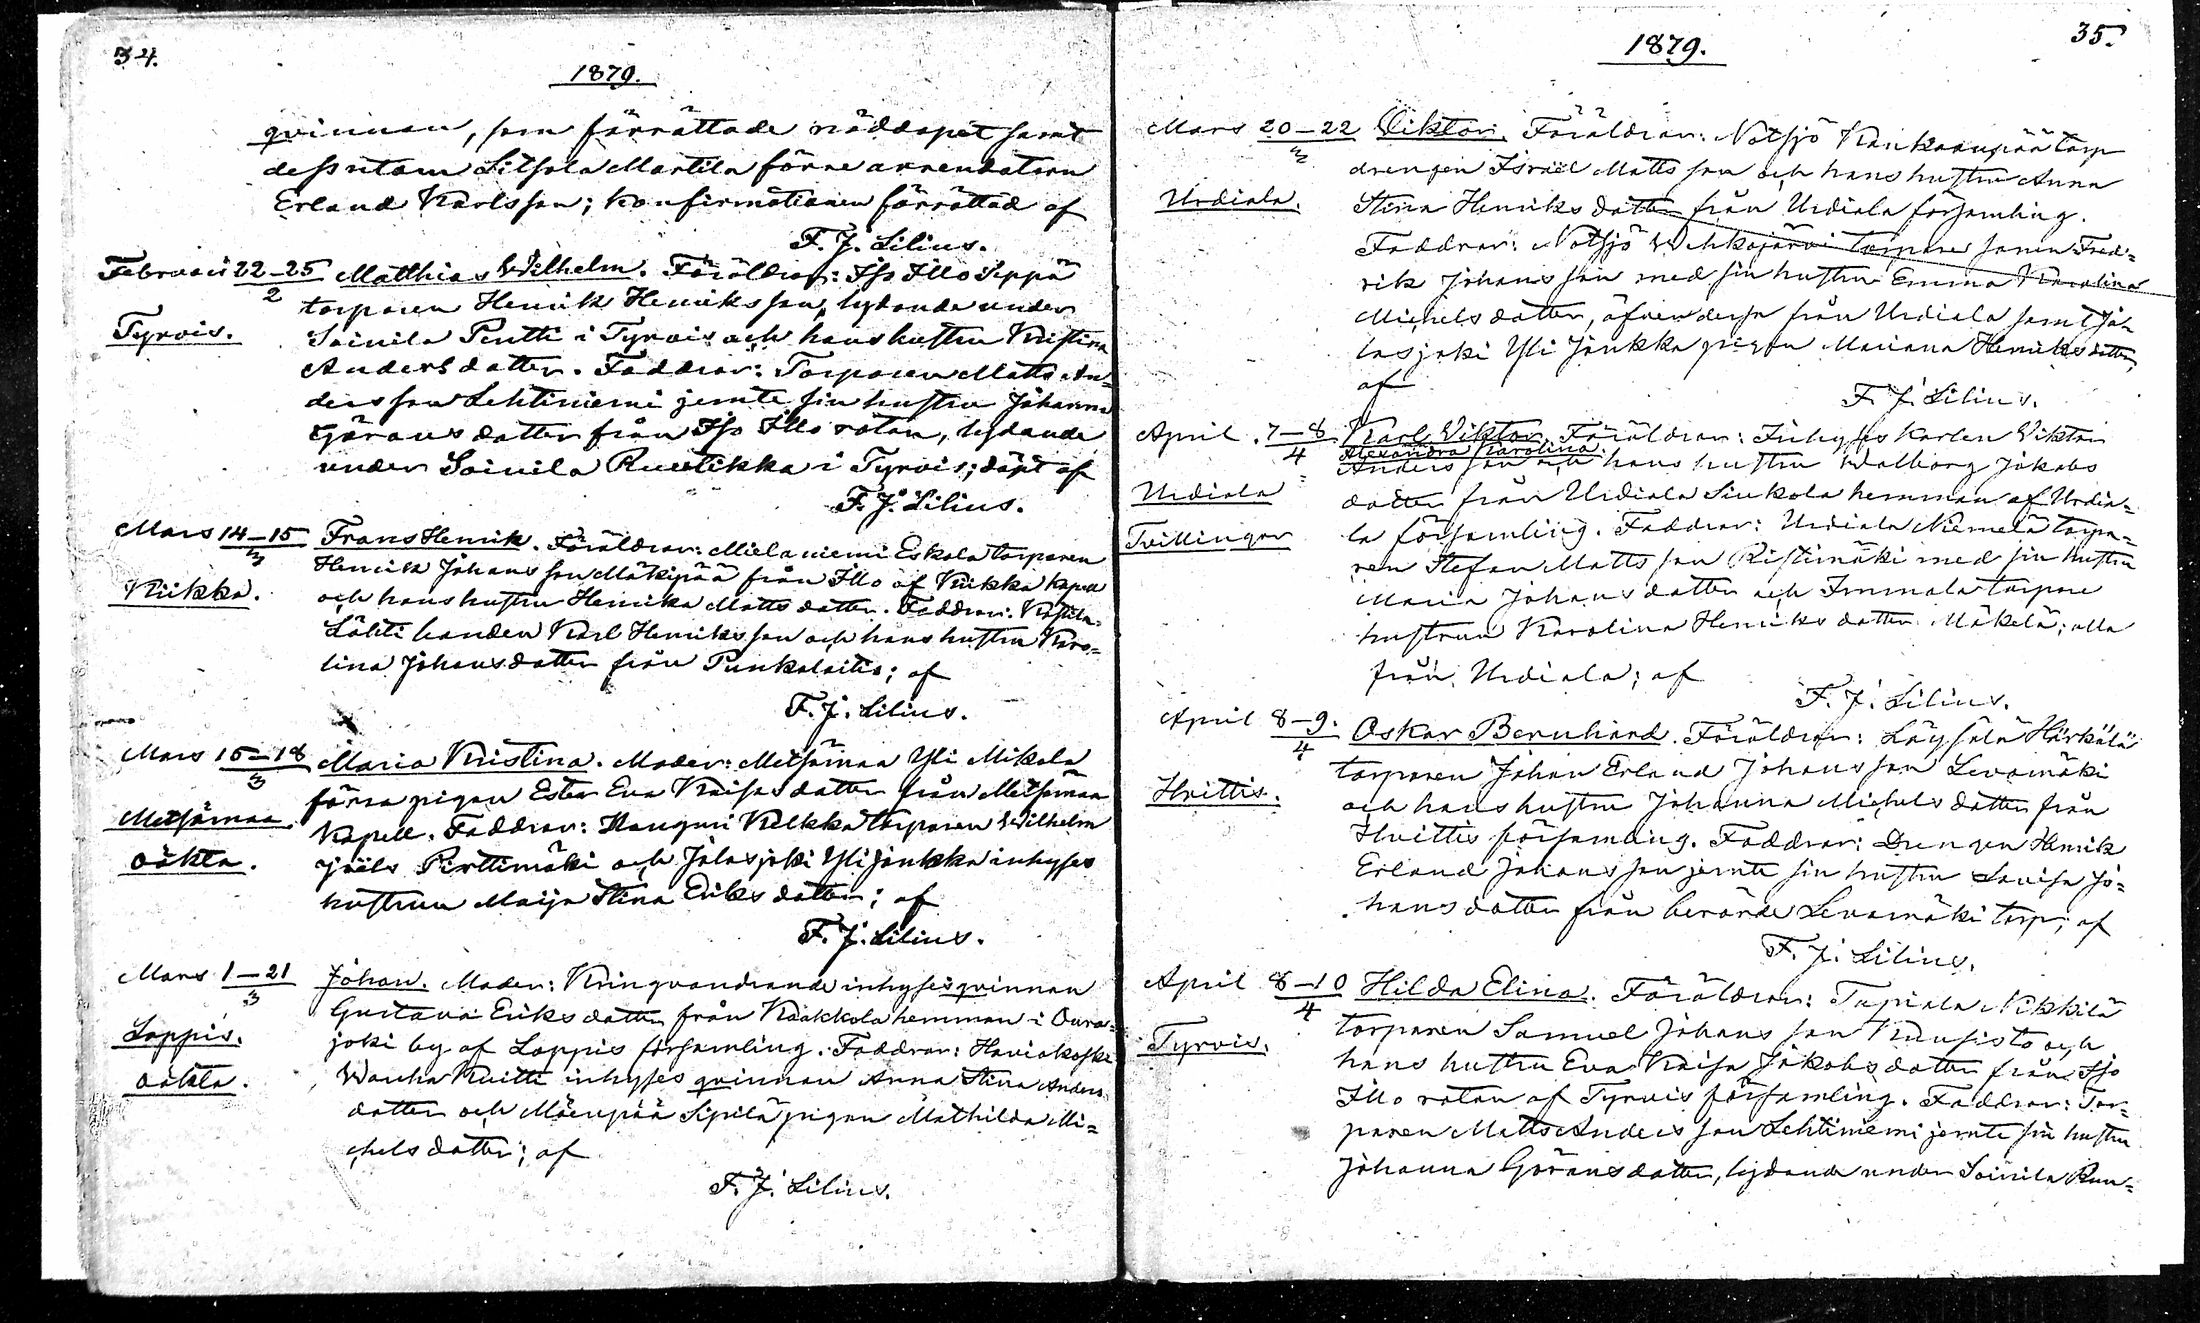 34.
1879.
qvinnan, som förrättade nöddopet samt
dessutom Sitsola Martila förre arrendatorn
Erland Karlsson; konfirmationen förrättad af
F. J. Lilius.
Februari 22–25 Matthias Wilhelm. Föräldrar: Iso Illo Seppä
2 torparen Henrik Henriksson, lydande under
Tyrvis. Soinila Pentti i Tyrvis och hans hustru Kristina
Andersdotter. Faddrar: Torparen Matts An=
dersson Lehtiniemi jemte sin hustru Johanna
Göransdotter från Iso Illo rotan, lydande
under Soinila Ruotikka i Tyrvis; döpt af
F. J. Lilius.
Mars 14–15 Frans Henrik. Föräldrar: Mielaniemi Eskola torparen
3 Henrik Johansson Mäkipää från Illo af Kiikka kapell
Kiikka. och hans hustru Henrika Mattsdotter. Faddrar:
Lähti bonden Karl Henriksson och hans hustru Karo=
lina Johansdotter från Punkalaitio; af
F. J. Lilius.
Mars 15–18 Maria Kristina. Moder: Metsämaa Yli Mikola
3 förra pigan Ester Eva Kaisasdotter från Metsämaa
Metsämaa. kapell. Faddrar: Kelkka torparen Wilhelm
oäkta. Joels Pirttimäki och Jalasjoki Yli Jaakka inhyses
hustrun Maija Stina Eriksdotter; af
F. J. Lilius.
Mars 1–21 Johan. Moder: Kringvandrande inhyses qvinnan
3 Gustava Eriksdotter från Kaakkola hemman i Oura=
Loppis. joki by af Loppis församling. Faddrar: Haviokoski
oäkta. Wanha Kuitti inhyses qvinnan Anna Stina Anders
dotter och Mäenpää Sipilä pigan Mathilda Mi=
chelsdotter; af
F. J. Lilius.
35.
1879.
Mars 20–22 Viktor. Föräldrar: Notsjö Kankaanpää torp
3 drengen Israel Mattsson och hans hustru Anna
Urdiala. Stina Henriksdotter från Urdiala församling.
Faddrar: Notsjö Wehkajärvi torpare sonen Fred=
rik Johansson med sin hustru Emma Karolina
Michelsdotter, äfven dessa från Urdiala samt Ja=
lasjoki Yli Jaakka pigan Mariana Henriksdotter,
af
F. J. Lilius.
April 7–8 Karl Viktor, Föräldrar: Inhyses karlen Viktor
4 Alexandra Karolina.
Andersson och hans hustru Walborg Jakobs
Urdiala dotter från Urdiala Siukola hemman af Urdia=
Tvillingar la församling. Faddrar: Urdiala Niemelä torpa=
ren Stefan Mattsson Ristimäki med sin hustru
Maria Johansdotter och Immala torpare
hustrun Karolina Henriksdotter Mäkelä; alla
från Urdiala; af
F. J. Lilius.
April 8–9. Oskar Bernhard. Föräldrar: Löysälä Härkälä
4 torparen Johan Erland Johansson Levamäki
Hvittis. och hans hustru Johanna Michelsdotter från
Hvittis församling. Faddrar: Drengen Henrik
Erland Johansson jemte sin hustru Lovisa Jo=
hansdotter från berörde Levamäki torp; af
F. J. Lilius.
April 8–10 Hilda Elina. Föräldrar: Tapiala Nikkilä
4 torparen Samuel Johansson Kuusisto och
Tyrvis. hans hustru Eva Kaisa Jakobsdotter från Iso
Illo rotan af Tyrvis församling. Faddrar: Tor=
paren Matts Andersson Lehtiniemi jemte sin hustru
Johanna Göransdotter, lydande under Soinila Ruo=